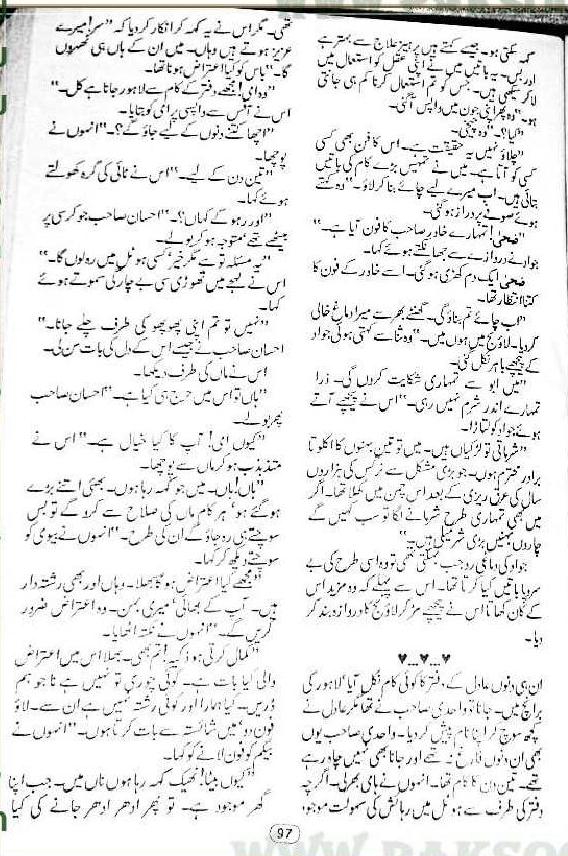 سمجھ سکتی ہو۔ جیسے کہتے ہیں پرہیز علاج سے بہتر ہے
اور بس۔ یہ باتیں میں نے اپنی عقل کو استعمال میں
لا کر سیکھی ہیں۔ جس کو تم استعمال کرنا کم ہی جانتی
ہو۔" وہ پھر اپنی جون میں واپس آ گئی۔
"کیا؟۔" وہ چیخی۔
"چلاؤ نہیں یہ حقیقت ہے۔ اس کا فن بھی کسی
کسی کو آتا ہے۔ میں نے تمہیں بڑے کام کی باتیں
بتائی ہیں۔ اب میرے لیے چائے بنا کر لاؤ۔" وہ کہتے
ہوئے صوفے پر دراز ہو گئی۔
"ضحیٰ! تمہارے خاور صاحب کا فون آیا ہے۔"
جواد نے دروازے سے جھانکتے ہوئے کہا۔
ضحیٰ ایک دم کھڑی ہو گئی۔ اسے خاور کے فون کا
کتنا انتظار تھا۔
"اب چائے تم بناؤ گی۔ گھنٹے بھر سے میرا دماغ خالی
کر دیا۔ لاؤنج میں ہوں میں۔" وہ ثنا سے کہتی ہوئی جواد
کے پیچھے باہر نکل گئی۔
"میں ابو سے تمہاری شکایت کروں گی۔ ذرا
تمہارے اندر شرم نہیں رہی۔" اس نے پیچھے آتے
ہوئے جواد کو لتاڑا۔
"شرماتی تو لڑکیاں ہیں۔ میں تو تین بہنوں کا اکلوتا
برادر محترم ہوں۔ جو بڑی مشکل سے نرگس کی ہزاروں
سال کی عرق ریزی کے بعد اس چمن میں کھلا تھا۔ اگر
میں بھی تمہاری طرح شرمانے لگا تو سب کہیں گے
چاروں بہنیں بڑی شرمیلی ہیں۔"
جواد کی دماغی رو جب بہکتی تھی تو وہ اسی طرح کی بے
سروپا باتیں کیا کرتا تھا۔ اس سے پہلے کہ وہ مزید اس
کے کان کھاتا اس نے پیچھے مڑ کر لاؤنج کا دروازہ بند کر
دیا۔
♥...♥...♥
ان ہی دنوں عادل کے دفتر کا کوئی کام نکل آیا لاہور کی
برانچ میں۔ جانا تو واحدی صاحب نے تھا مگر عادل نے
کچھ سوچ کر اپنا نام پیش کر دیا۔ واحدی صاحب یوں
بھی ان دنوں فارغ نہ تھے اور جانا بھی نہیں چاہ رہے
تھے۔ تین دن کا کام تھا۔ انہوں نے ہامی بھر لی۔ اگرچہ
دفتر کی طرف سے ہوٹل میں رہائش کی سہولت موجود
تھی۔ مگر اس نے یہ کہہ کر انکار کر دیا کہ "سر! میرے
عزیز ہوتے ہیں وہاں۔ میں ان کے ہاں ہی ٹھہروں
گا۔" باس کو کیا اعتراض ہونا تھا۔
"وہ ای! مجھے دفتر کے کام سے لاہور جانا ہے کل۔"
اس نے آفس سے واپسی پر امی کو بتایا۔
"اچھا کتنے دنوں کے لیے جاؤ گے؟۔" انہوں نے
پوچھا۔
"تین دن کے لیے۔" اس نے ٹائی کی گرہ کھولتے
ہوئے کہا۔
"اور رہو گے کہاں؟۔" احسان صاحب جو کرسی پر
بیٹھے تھے متوجہ ہو کر بولے۔
"یہ مسئلہ تو ہے مگر خیر کسی ہوٹل میں رہ لوں گا۔"
اس نے لہجے میں تھوڑی سی بے چارگی سموتے ہوئے
کہا۔
"نہیں تو تم اپنی پھوپھو کی طرف چلے جانا۔"
احسان صاحب نے جیسے اس کے دل کی بات سن لی۔
اس نے ماں کی طرف دیکھا۔
"ہاں تو اس میں حرج ہی کیا ہے۔" احسان صاحب
پھر بولے۔
"کیوں امی! آپ کا کیا خیال ہے۔" اس نے
متذبذب ہو کر ماں سے پوچھا۔
"ہاں! ہاں۔ میں جو کہہ رہا ہوں۔ بھئی اتنے بڑے
ہو گئے ہو، ہر کام ماں کی صلاح سے کرو گے تو بس
سوچتے ہی رہ جاؤ گے ان کی طرح۔" انہوں نے بیوی کو
سوچتے دیکھ کر کہا۔
"مجھے کیا اعتراض ہو گا بھلا۔ وہاں اور بھی رشتہ دار
ہیں۔ آپ کے بھائی، میری بہن۔ وہ اعتراض ضرور
کریں گے۔" انہوں نے نکتہ اٹھایا۔
"کمال کرتی ہو ذکیہ! تم بھی۔ بھلا اس میں اعتراض
والی کیا بات ہے۔ کوئی چوری تو نہیں ہے نا جو ہم
ڈریں۔ کیا ہمارا اور کوئی رشتہ نہیں ہے ان سے۔ لاؤ
فون دو، میں شائستہ سے بات کرتا ہوں۔" انہوں نے
بیگم کو فون لانے کو کہا۔
"کیوں بیٹا! ٹھیک کہہ رہا ہوں ناں میں۔ جب اپنا
گھر موجود ہے۔ تو پھر ادھر ادھر جانے کی کیا
97